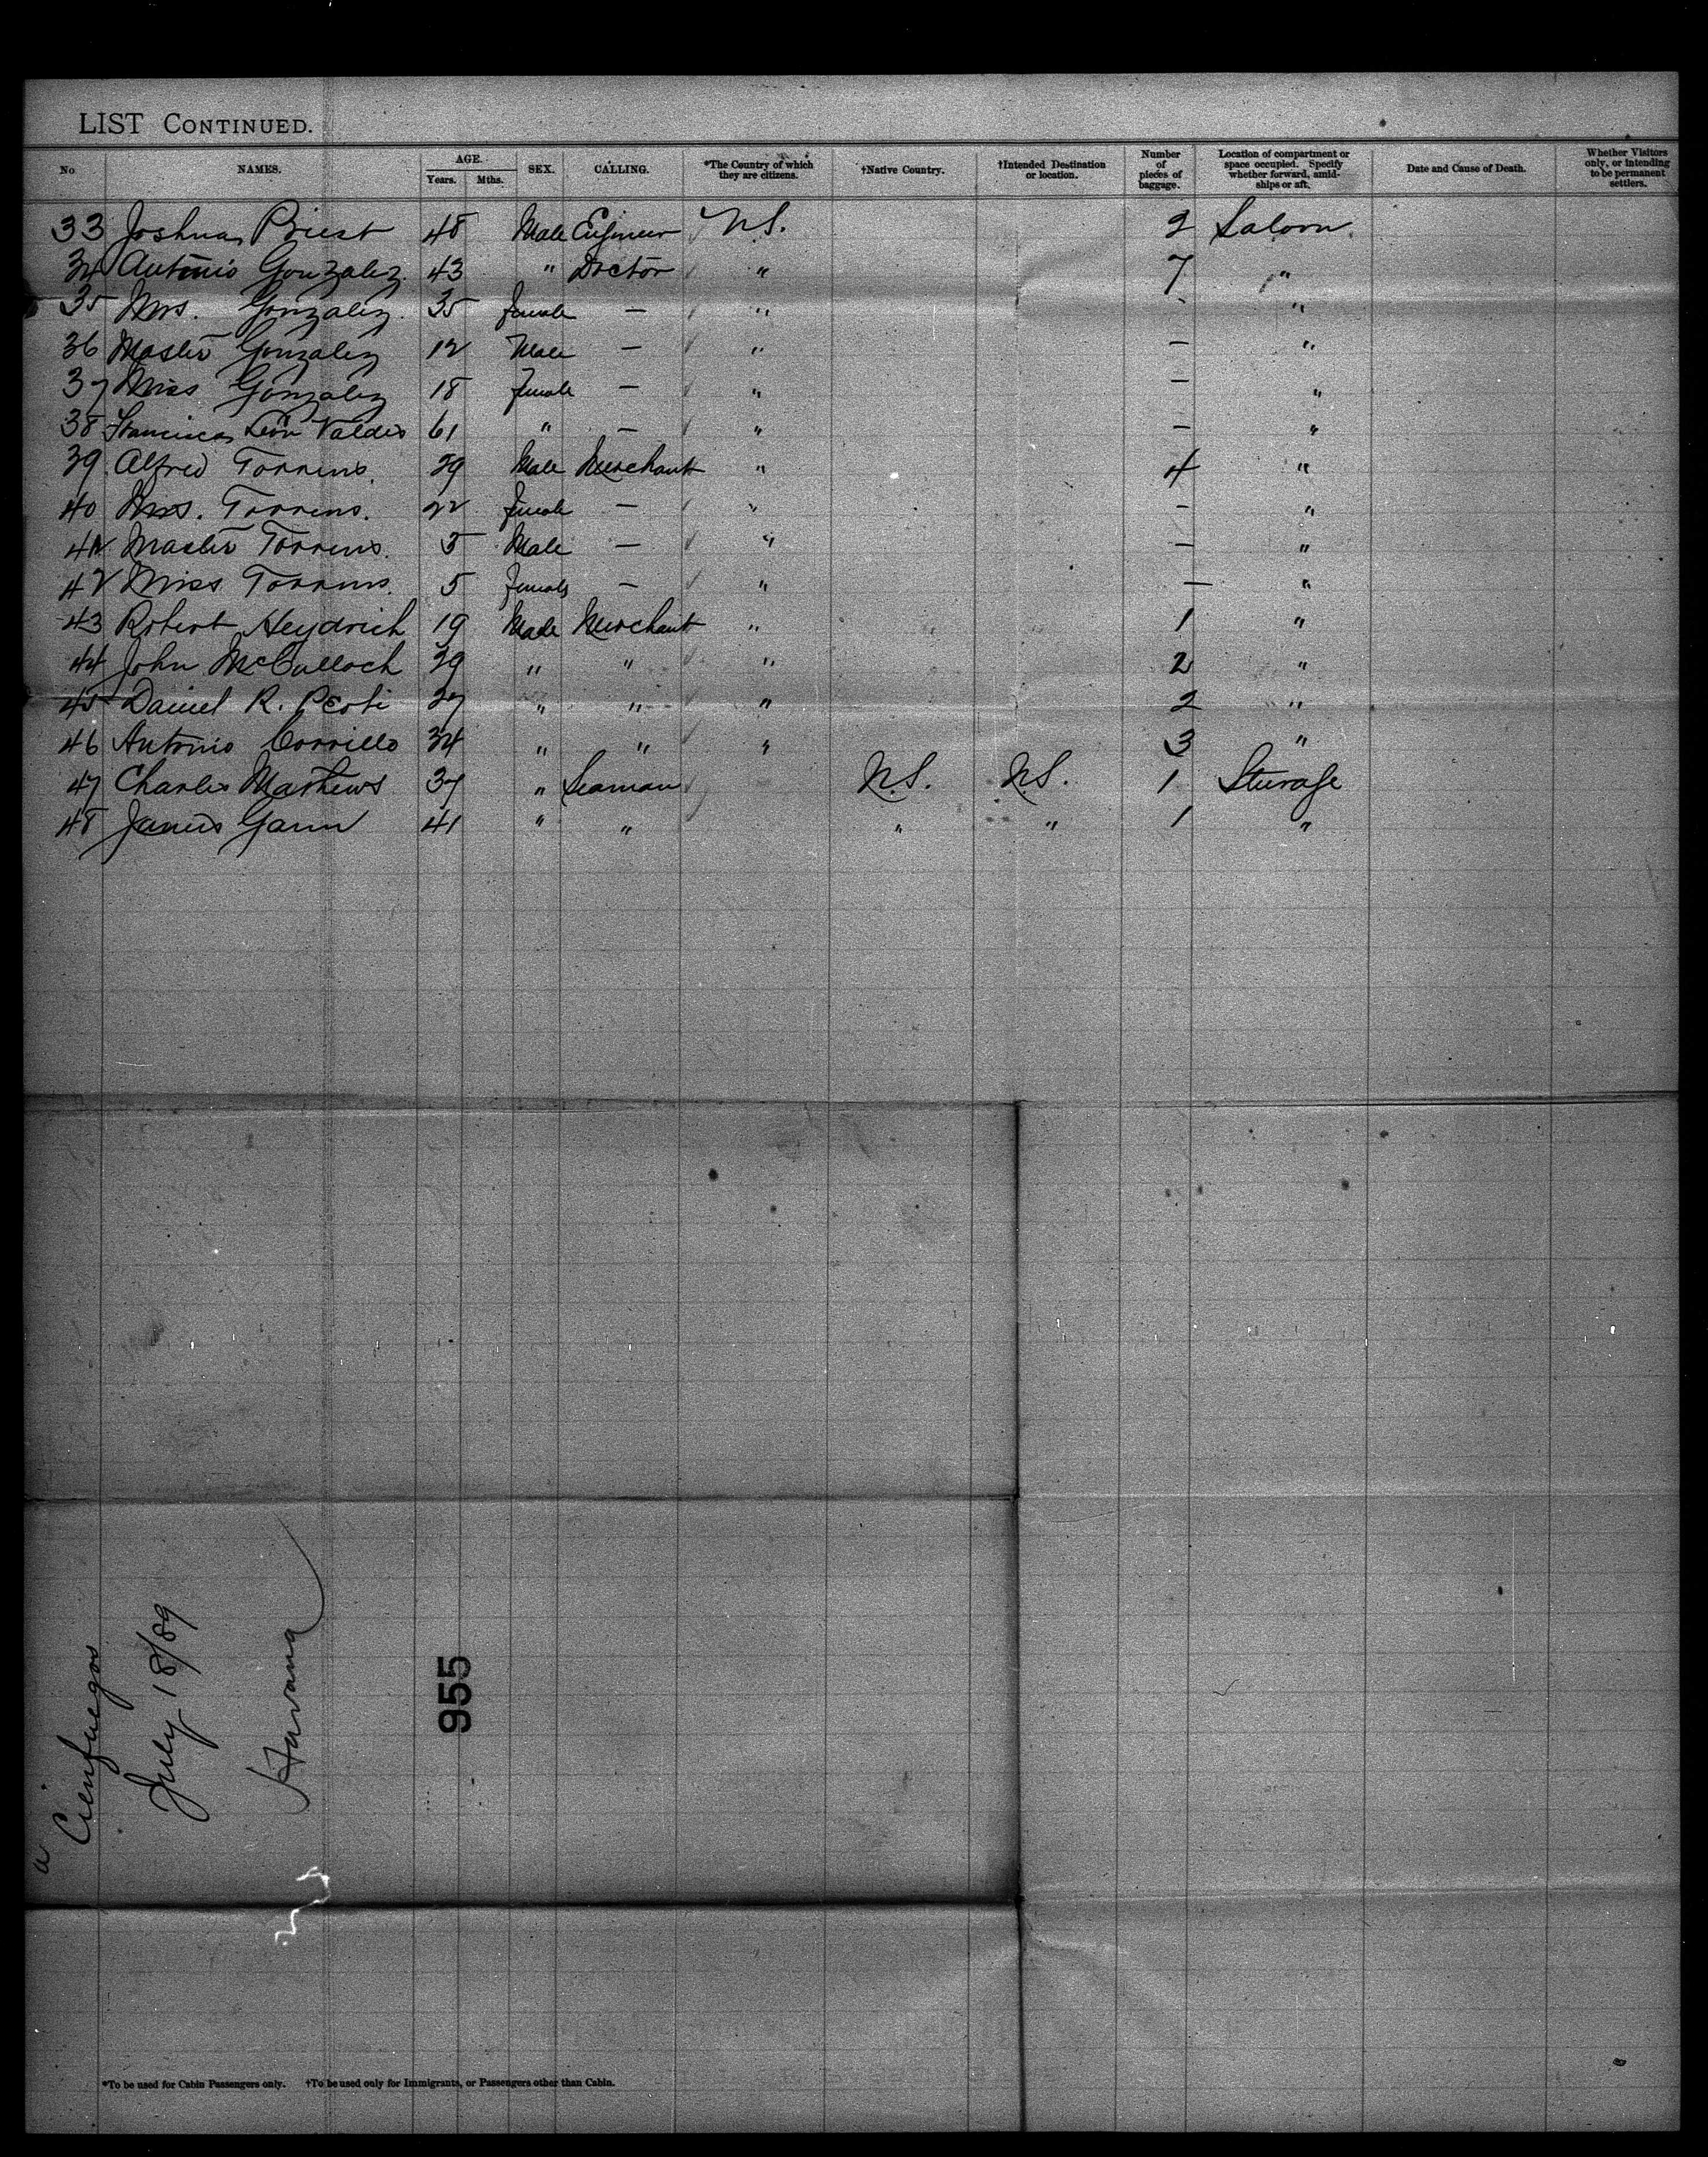 LIST CONTINUED.
No NAMES. AGE. Years. Mths. SEX. CALLING. *The Country of which they are citizens. †Native Country. †Intended Destination or location. Number of pieces of baggage. Location of compartment or space occupied. Specify whether forward, amidships or aft. Date and Cause of Death. Whether Visitors only, or intending to be permanent settlers.
33 Joshua Priest 48 Male Engineer U.S. 2 Saloon
34 Antonio Gonzalez 43 " Doctor " 7 "
35 Mrs. Gonzalez 35 Female — " - "
36 Master Gonzalez 12 Male — " — "
37 Miss Gonzalez 18 Female — " — "
38 Francisca León Valdes 61 " — " — "
39 Alfred Torrens. 39 Male Merchant " 4 "
40 Mrs. Torrens. 22 Female — " - "
41 Master Torrens. 3 Male — " — "
42 Miss Torrens. 5 Female — " — "
43 Robert Heydrich 19 Male Merchant " 1 "
44 John McCulloch 39 " " " 2 "
45 Daniel R. 27 " " " 2 "
46 Antonio Carrillo 34 " " " 3 "
47 Charles Mathews 37 " Seaman U.S. U.S. 1 Steerage
48 James Gann 41 " " " " 1 "
Cienfuegos
July 18/89
Havana
955
*To be used for Cabin Passengers only. †To be used only for Immigrants, or Passengers other than Cabin.